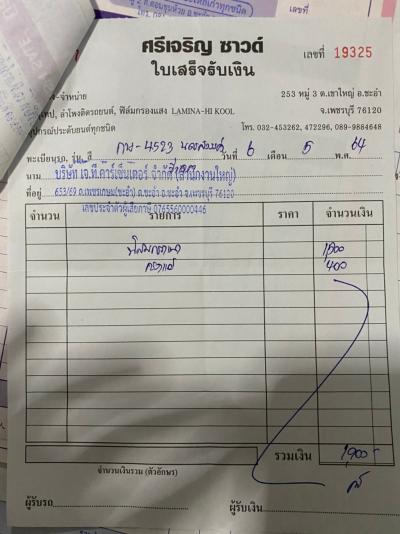 ศรีเจริญ ซาวด์
ใบเสร็จรับเงิน
เลขที่ 19325
จำหน่าย
253 หมู่ 3 ต.เขาใหญ่ อ.ชะอำ
ลำโพงติดรถยนต์, ฟิล์มกรองแสง LAMINA-HI KOOL
จ.เพชรบุรี 76120
อุปกรณ์ประดับยนต์ทุกชนิด
โทร. 032-453262, 472296, 089-9884648
ทะเบียนรถ รุ่น สี 4523 วันที่ 6 เดือน 5 พ.ศ. 64
นาม บริษัท เจ.ที.คาร์เซ็นเตอร์ จำกัด (สำนักงานใหญ่)
ที่อยู่ 653/69 ถ.เพชรเกษม(ชะอำ) ต.ชะอำ อ.ชะอำ จ.เพชรบุรี 76120
เลขประจำตัวผู้เสียภาษี 0765560000446
จำนวน รายการ ราคา จำนวนเงิน
400
รวมเงิน 1,900-
จำนวนเงินรวม (ตัวอักษร)
ผู้รับรถ ผู้รับเงิน